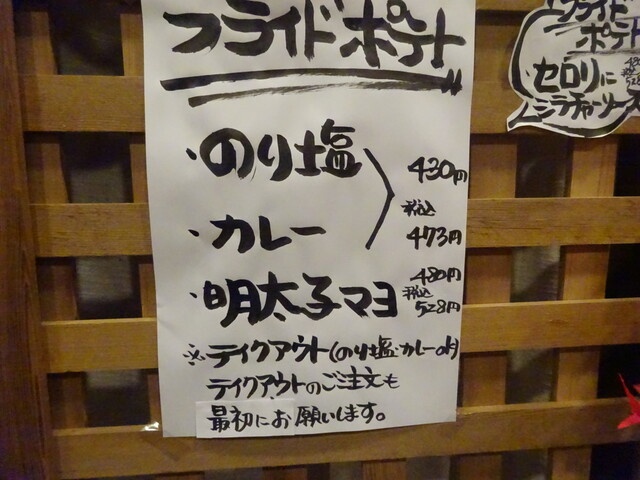 フライドポテト
・のり塩
430円
税込
473円
・カレー
・明太子マヨ
480円
税込
528円
※テイクアウト(のり塩・カレーok)
テイクアウトのご注文も
最初にお願いします。
フライド
ポテト
セロリに
シラチャーソース